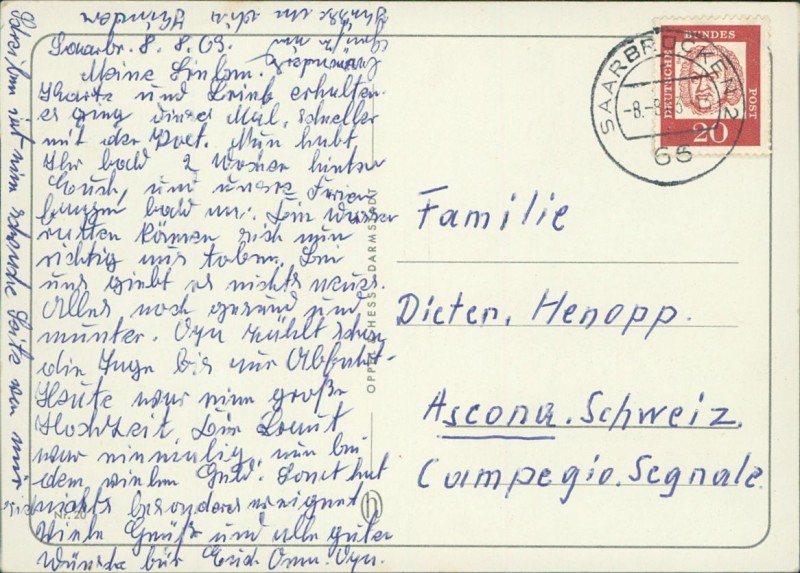 Saarbr. 8. 8. 63.
Meine Lieben.
Karte und Brief erhalten.
es ging dieses Mal, schneller
mit der Post. Nun habt
Ihr bald 2 Wochen hinter
Euch, und unsere Ferien
fangen bald an. Die Wasser
ratten können sich nun
richtig aus toben. Bei
uns giebt es nichts neues.
Alles noch gesund und
munter. Opa zählt schon
die Tage bis zur Abfahrt.
Heute war eine große
Hochzeit. Die Braut
war einmalig, nun bei
dem vielen Geld. Sonst hat
nichts besonderes ereignet
Viele Grüße und alle guten
Wünsche für Euch Oma. Opa.
Schreiben ist eine schwache Seite von mir
Nr. 20
OPPEL-HESS DARMSTADT
SAARBRÜCKEN 2
66
DEUTSCHE BUNDES POST
20
Familie
Dieter. Henopp.
Ascona. Schweiz.
Campegio. Segnale.